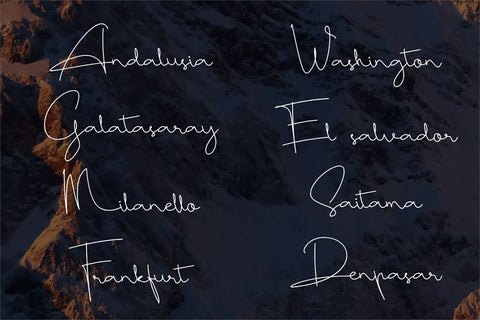 Andalusia
Washington
Galatasaray
El salvador
Milanello
Saitama
Frankfurt
Denpasar